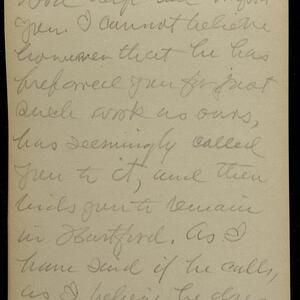 God help and inspire
you. I cannot believe
however that he has
prepared you for just
such work as ours,
has seemingly called
you to it, and then
bids you to remain
in Hartford. As I
have said if he calls,
as I believe he does